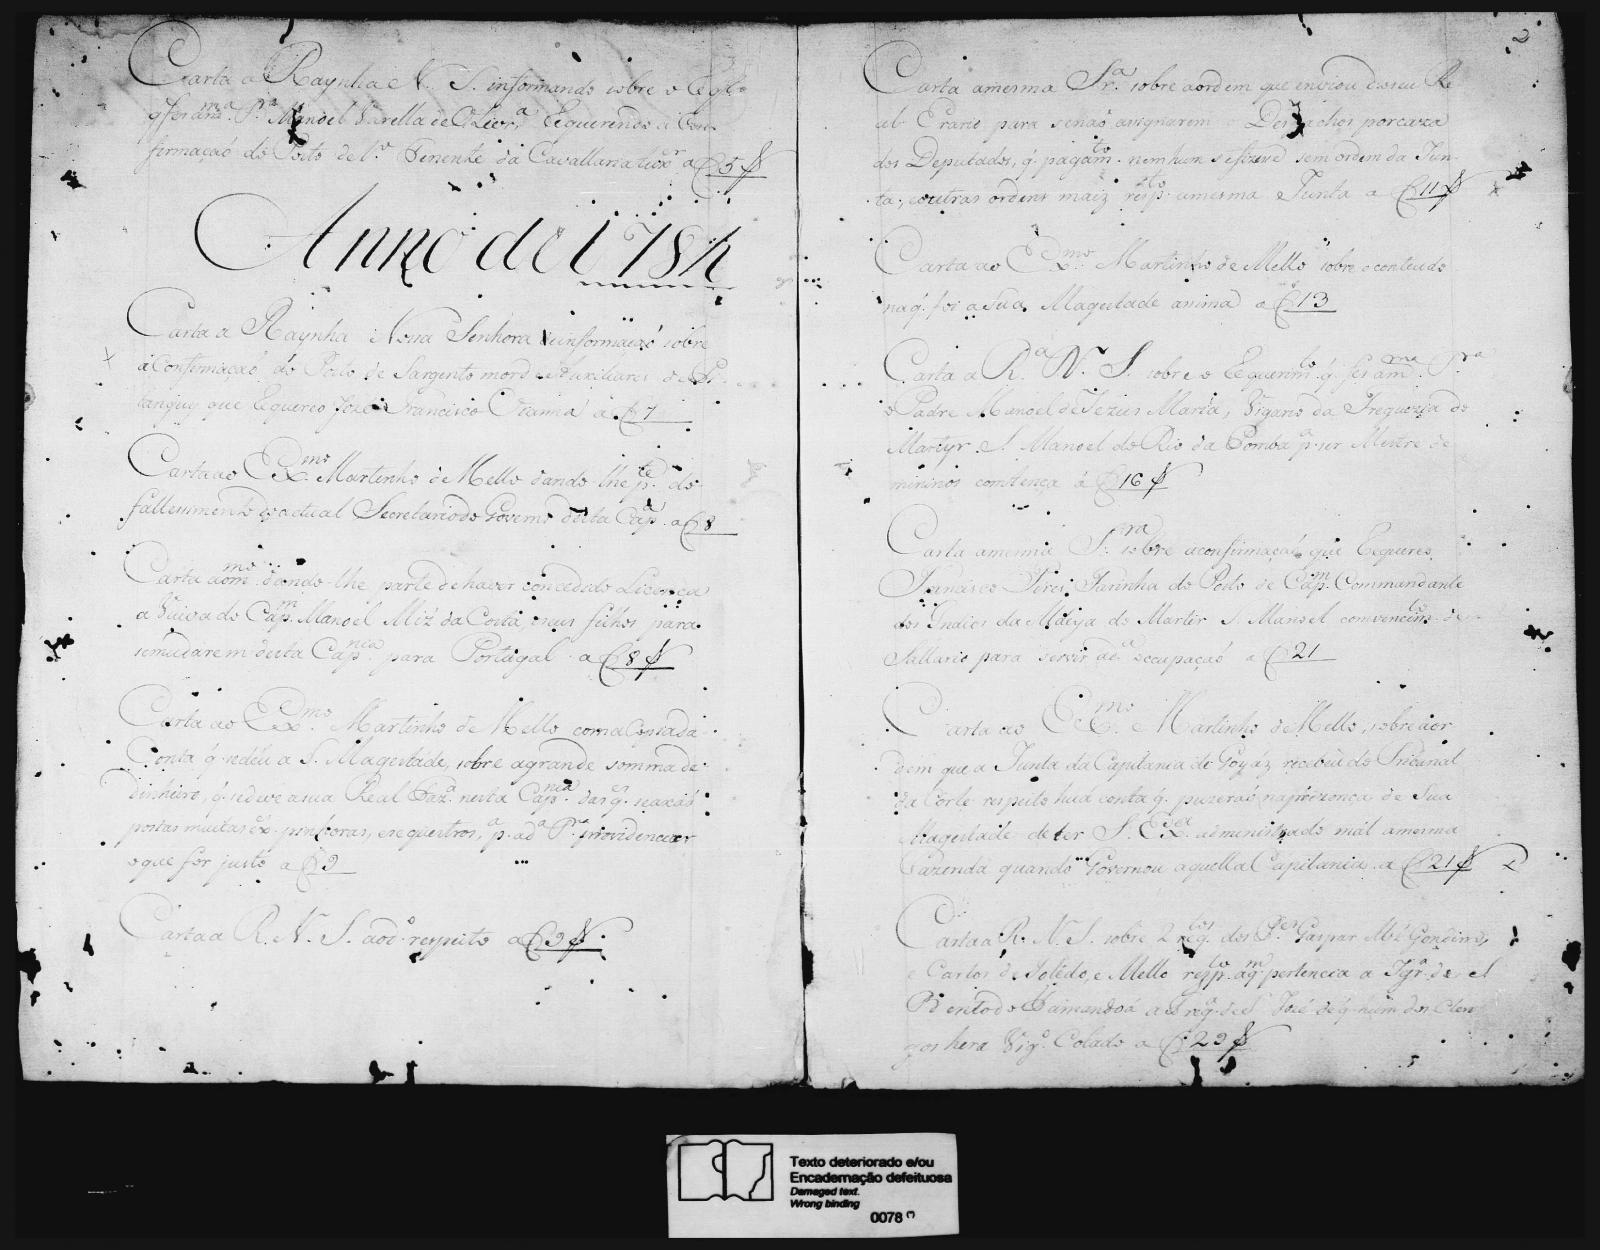 Carta a Raynha N. S. informando sobre o
q fes a ma. Sra. Manoel Varella de Olivra. Requerendo a Con
firmaçaõ do Posto de 1.o Tenente da Cavallaria a 5
Anno de 1784
Carta a Raynha Nossa Senhora informaçaõ sobre
a Confirmaçaõ do Posto de Sargento mor de Auxiliares de Pi
tanguy que Requereo Joze Francisco a 7
Carta ao Exmo. Martinho de Mello dando-lhe pte. do
fallessimento do actual Secretario do Governo desta Cap. a 8
Carta ao mo. dando-lhe parte de haver concedido Licença
a Viuva do Capm. Manoel Miz da Costa, e seus filhos para
se mudarem desta Capnia. para Portugal a 8
Carta ao Exmo. Martinho de Mello com a Copia da
Conta q. se deu a S. Magestade, sobre a grande somma de
dinheiro, q. se deve a sua Real Faza. nesta Capnia. das qs.
postas muitas penhoras, e sequestros, pa. a da. Sra. providenciar
o que for justo a 9
Carta a R. N. S. ao do. respeito a 9
2
Carta a mesma Sra. sobre a ordem que enviou do seu Re
al Erario para se naõ assignarem Despachos por caza
dos Deputados, q. pagamto. nem hum se fizesse sem ordem da Jun
ta, e outras ordens maiz respto. a mesma Junta a 11
Carta ao Exmo. Martinho de Mello sobre o conteudo
na q. foi a sua Magestade assima a 13
Carta a Ra. N. S. sobre o Requerimto. q. fes a ma. Sra.
o Padre Manoel de Jezus Maria, Vigario da Freguezia do
Martyr S. Manoel do Rio da Pomba pa. ser Mestre de
mininos com tença a 16
Carta a mesma Sra. sobre a confirmaçaõ que Requereo
Francisco Pires Farinha do Posto de Capm. Commandante
dos Indios da Aldeya do Martir S. Manoel com vencimto. de
Sallario para servir a da. occupaçaõ a 21
Carta ao Exmo. Martinho de Mello, sobre a or
dem que a Junta da Capitania de Goyáz recebeu do Tribunal
da Corte respeito huá conta q. puzeraõ na prezença de Sua
Magestade de ter S. Exa. administrado mal a mesma
Fazenda quando Governou aquella Capitania a 21
Carta a R. N. S. sobre 2 reqtos. dos Pes. Gaspar Miz Gondim,
e Carlos de Tolédo, e Mello respto. a qm. pertencia a Igra. de S.
Bento do Tamanduá a Frega. de S. José de q. hum dos Cleri
gos hera Vigo. Colado a 29
Texto deteriorado e/ou
Encadernação defeituosa
Damaged text.
Wrong binding
0078